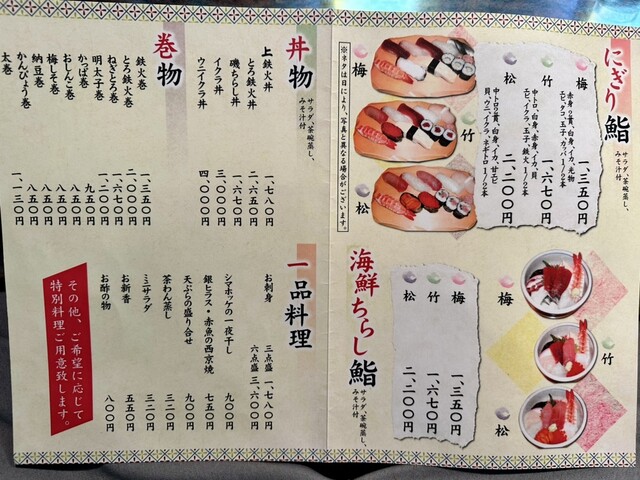 にぎり鮨
サラダ、茶碗蒸し、
みそ汁付
梅
赤身2貫、白身、イカ、光物
エビ、タコ、玉子、カッパ1/2本
一、三五〇円
竹
中トロ、白身、赤身、イカ、貝
エビ、イクラ、玉子、鉄火1/2本
一、六七〇円
松
中トロ2貫、白身、イカ、甘エビ
貝、ウニ、イクラ、ネギトロ1/2本
二、二〇〇円
梅
竹
松
※ネタは日により、写真と異なる場合がございます。
丼物
サラダ、茶碗蒸し、
みそ汁付
上鉄火丼 一、七八〇円
とろ鉄火丼 二、六五〇円
磯ちらし丼 一、六七〇円
イクラ丼 三、〇〇〇円
ウニイクラ丼 四、〇〇〇円
巻物
鉄火巻 一、三五〇円
とろ鉄火巻 二、〇〇〇円
ねぎとろ巻 一、六七〇円
明太子巻 一、二〇〇円
かっぱ巻 九五〇円
おしんこ巻 八五〇円
梅しそ巻 八五〇円
納豆巻 八五〇円
かんぴょう巻 八五〇円
太巻 一、一三〇円
海鮮ちらし鮨
サラダ、茶碗蒸し、
みそ汁付
梅
竹
松
梅 一、三五〇円
竹 一、六七〇円
松 二、二〇〇円
一品料理
お刺身 三点盛 一、七八〇円
六点盛 三、六〇〇円
シマホッケの一夜干し 九〇〇円
銀ヒラス・赤魚の西京焼 七五〇円
天ぷらの盛り合せ 九〇〇円
茶わん蒸し 三二〇円
ミニサラダ 三二〇円
お新香 五五〇円
お酢の物 八〇〇円
その他、ご希望に応じて
特別料理ご用意致します。